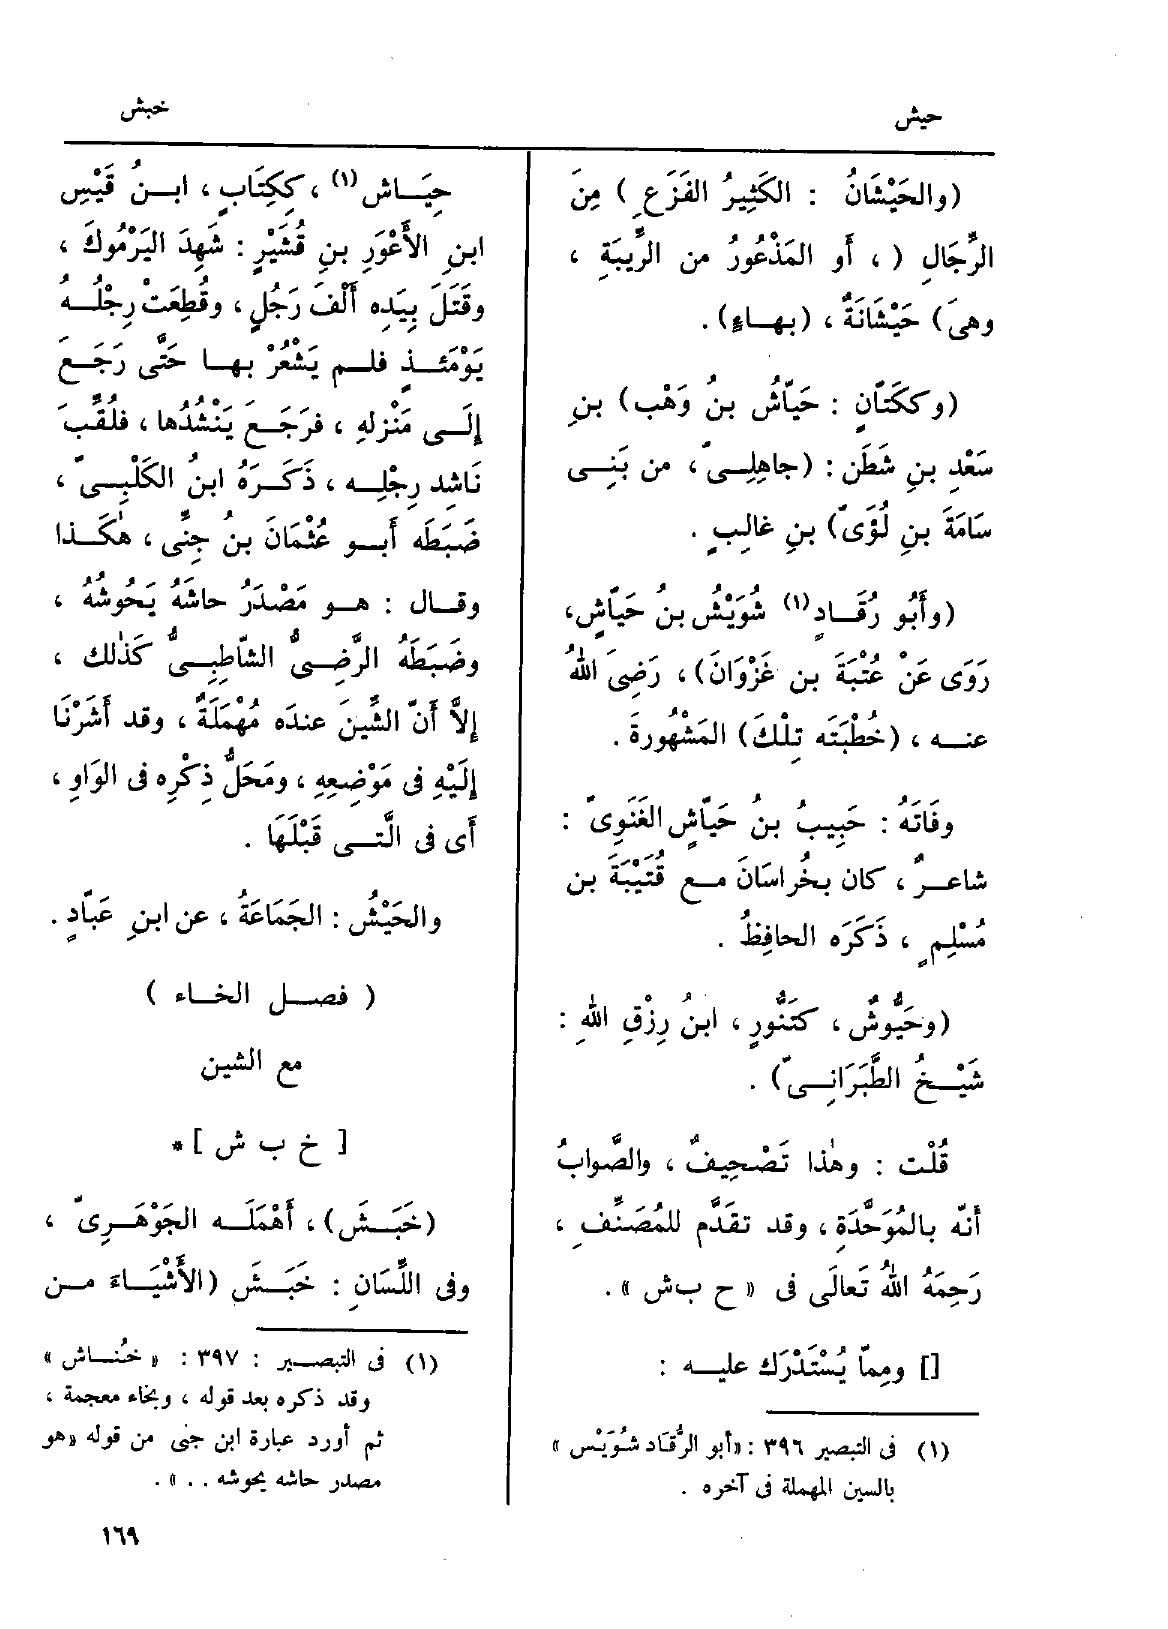 حيش
خبش
(والحَيْشَانُ : الكَثِيرُ الفَزَعِ ) مِنَ
الرِّجَالِ ( ، أَو المَذْعُورُ من الرِّيبَةِ ،
وهىَ) حَيْشَانَةٌ ، (بهــاءٍ) .
(وككَتّانٍ : حَيّاشُ بنُ وَهْب) بنِ
سَعْدِ بنِ شَطَن : (جاهِلِــىّ ، من بَنِــى
سَامَةَ بنِ لُؤَىّ) بنِ غالِبٍ .
(وأَبُو رُقَــادٍ(١) شُوَيْشُ بنُ حَيّاشٍ،
رَوَى عَنْ عُتْبَةَ بن غَزْوَانَ) ، رَضِىَ اللهُ
عنــه ، (خُطْبَتَه تِلْكَ) المَشْهُورةَ .
وفَاتَهُ : حَبِيبُ بنُ حَيّاشٍ الغَنَوِىّ :
شاعــرٌ ، كان بخُراسَانَ مــع قُتَيْبَةَ بن
مُسْلِمٍ ، ذَكَرَه الحافِظُ .
(وحَيُّوشٌ ، كتَنُّورٍ ، ابنُ رِزْقِ اللهِ :
شَيْــخُ الطَّبَرَانِــىّ) .
قُلْت : وهٰذا تَصْحِيفٌ ، والصَّوابُ
أَنّه بالمُوَحَّدَةِ ، وقد تقدَّم للمُصَنِّفِ ،
رَحِمَهُ اللهُ تَعالَى فى « ح ب ش » .
[] ومِمّا يُسْتَدْرَك عليــه :
(١) فى التبصير ٣٩٦ : «أبو الرُّقَاد شُوَيْس »
بالسين المهملة فى آخره .
حِيَــاش(١) ، ككِتَابٍ ، ابــنُ قَيْسِ
ابنِ الأَعْوَرِ بنِ قُشَيْرٍ : شَهِدَ اليَرْمُوكَ ،
وقَتَلَ بِيَدِه أَلْفَ رَجُلٍ ، وقُطِعَتْ رِجْلُــهُ
يَوْمَئــذٍ فلــم يَشْعُرْ بهــا حَتَّى رَجَــعَ
إِلَــى مَنْزِلهِ ، فرَجَــعَ يَنْشُدُها ، فلُقِّبَ
نَاشِدَ رِجْلِــه ، ذَكَــرَهُ ابنُ الكَلْبِــىّ ،
ضَبَطَه أَبــو عُثْمَانَ بنُ جِنِّى ، هٰكَــذا
وقــال : هــو مَصْدَرُ حاشَهُ يَحُوشُهُ ،
وضَبَطَهُ الرَّضِــىُّ الشّاطِبِــىُّ كَذٰلك ،
إِلاَّ أَنّ الشِّينَ عندَه مُهْمَلَةٌ ، وقد أَشَرْنَا
إِلَيْهِ فى مَوْضِعِهِ ، ومَحَلُّ ذِكْرِه فى الوَاوِ ،
أَى فى الَّتــى قَبْلَهَا .
والحَيْشُ : الجَمَاعَةُ ، عن ابنِ عَبّادٍ .
( فصــل الخــاء )
مع الشين
[ خ ب ش ] *
(خَبَــشَ) ، أَهْمَلَــه الجَوْهَــرِىّ ،
وفى اللِّسَانِ : خَبَــشَ (الأَشْيَــاءَ مــن
(١) فى التبصــير : ٣٩٧ : « خُنــاش »
وقد ذكره بعد قوله ، وبخاء معجمة ،
ثم أورد عبارة ابن جنى من قوله «هو
مصدر حاشه يحوشه . . » .
١٦٩